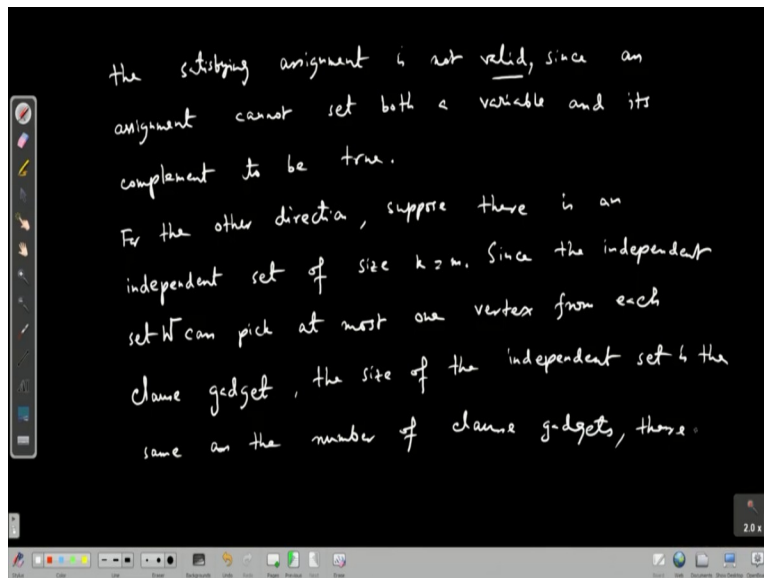 the satisfying assignment is not valid, since an
assignment cannot set both a variable and its
complement to be true.
For the other direction, suppose there is an
independent set of size k = m. Since the independent
set W can pick at most one vertex from each
clause gadget, the size of the independent set is the
same as the number of clause gadgets, these
2.0 x